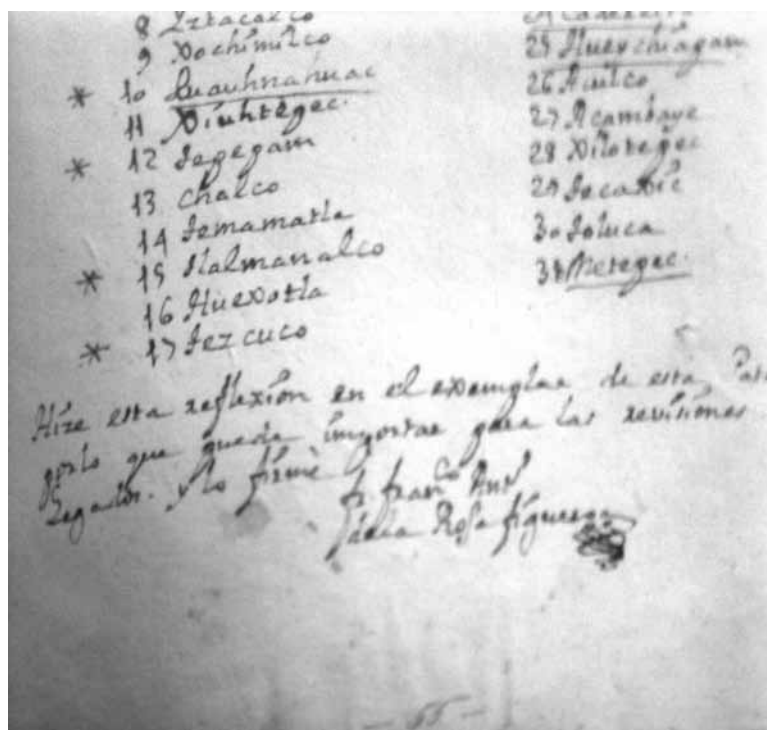 8 Iztacalco
9 Xochimilco
* 10 Quauhnahuac
11 Xiuhtepec.
* 12 Tepepam
13 Chalco
14 Temamatla
* 15 Tlalmanalco
16 Huexotla
* 17 Tezcuco
25 Huexchiapam
26 Aculco
27 Acambaye
28 Xilotepec
29 Tecaxic
30 Toluca
31 Metepec.
Hize esta reflexion en el exemplar de esta
por lo que puede importar para las revisiones
y lo firmè
fr. Fran.co Ant.o
de la Rosa figueroa
- 66 -